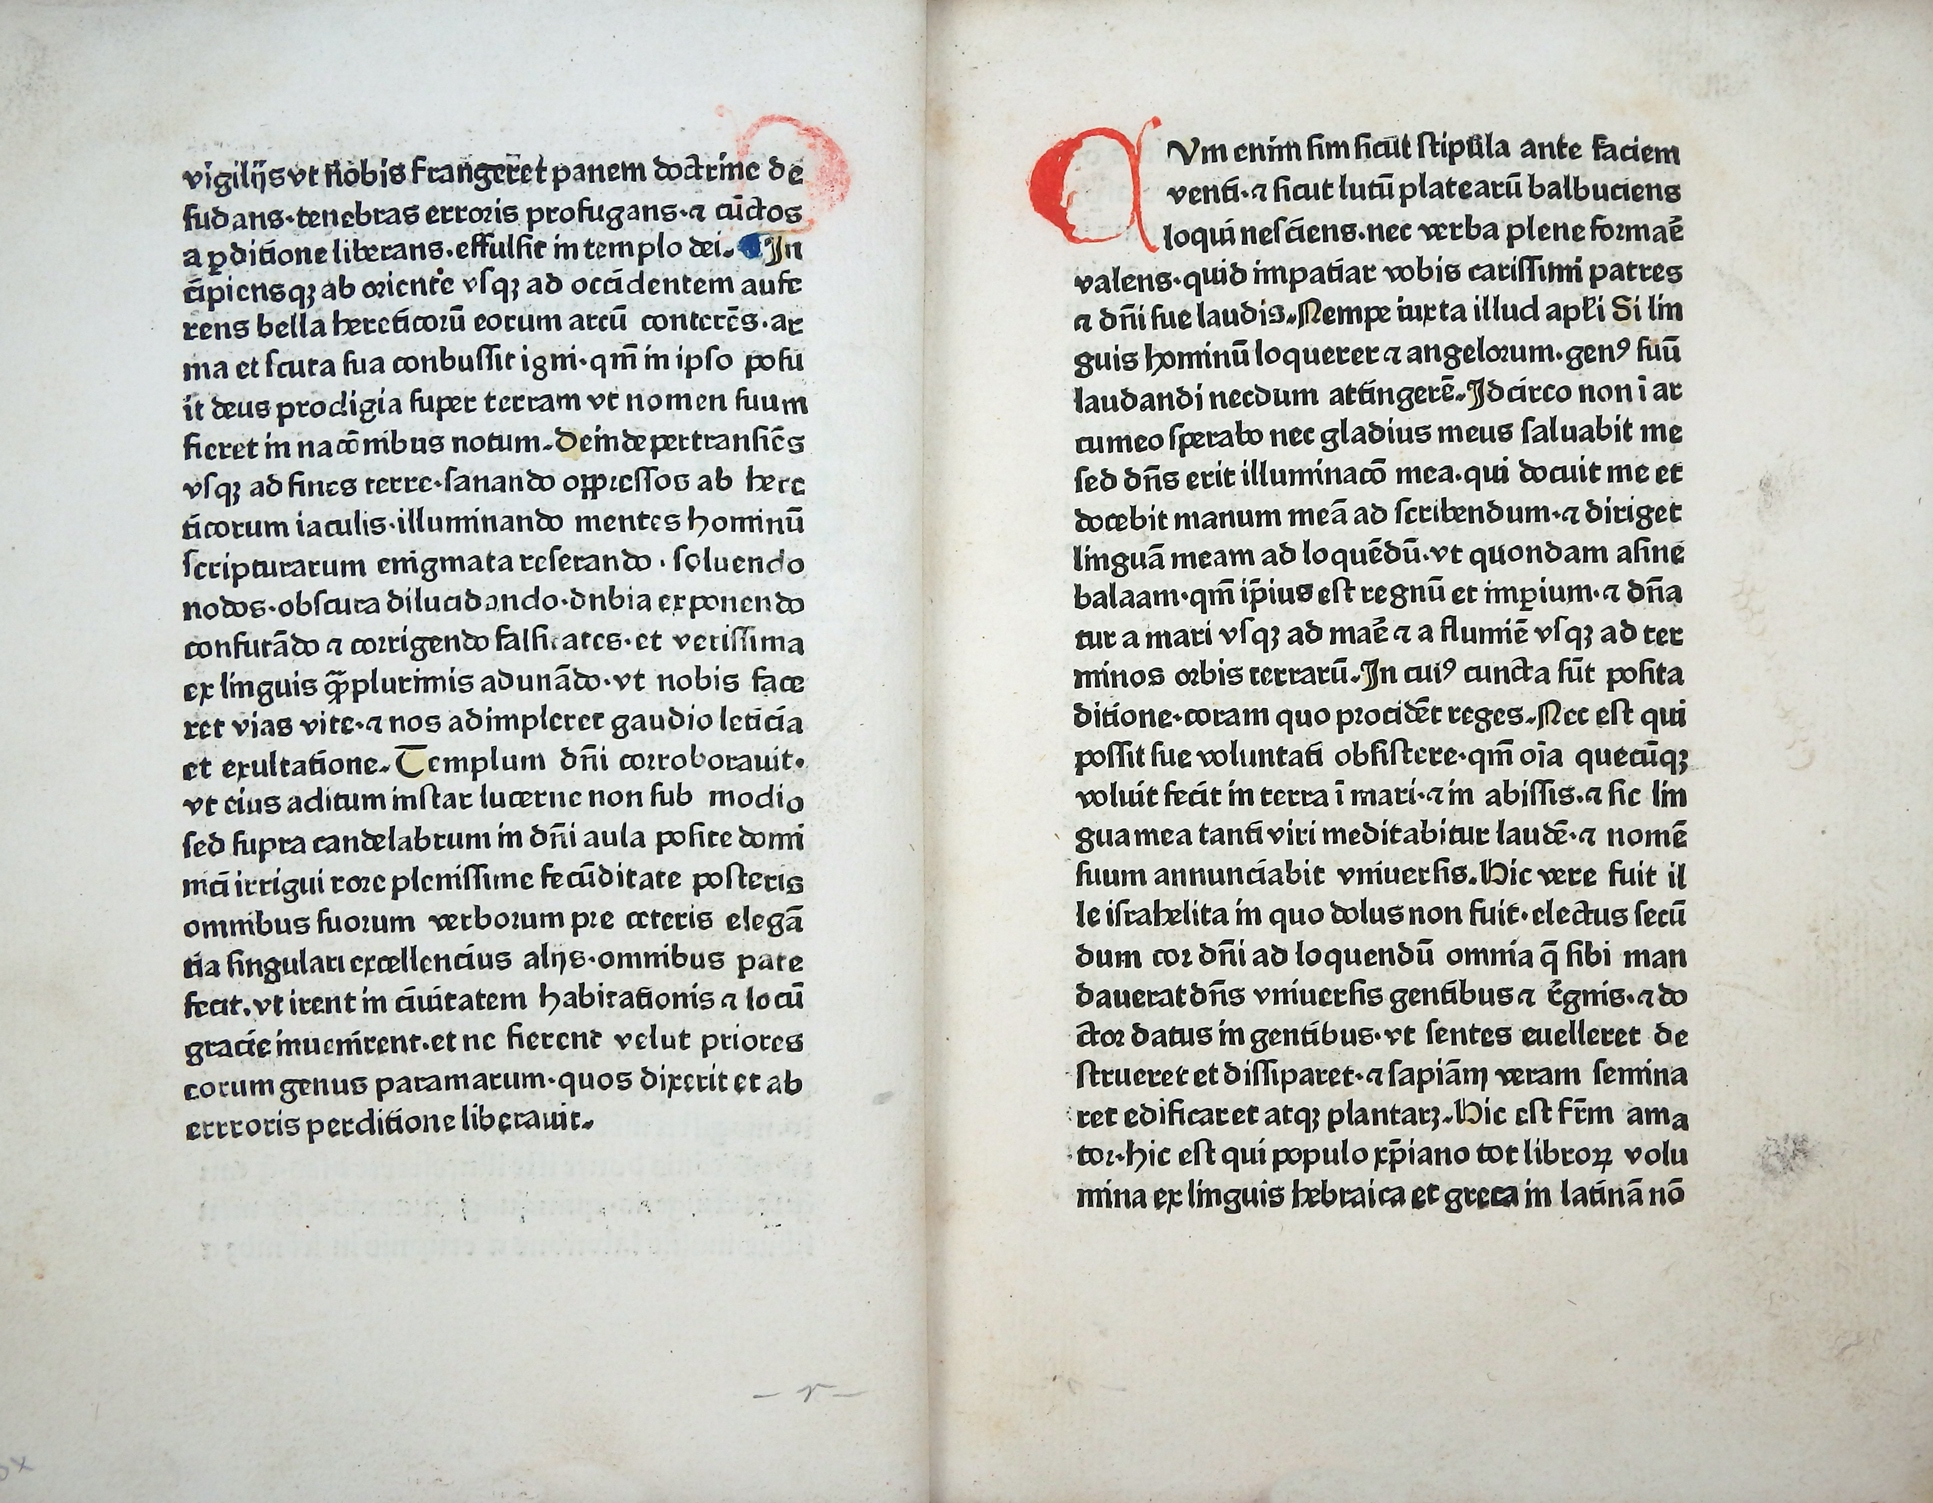 vigilijs vt nobis frangeret panem doctrine de
sudans·tenebras erroris profugans·⁊ cūctos
a ꝑditione liberans·effulsit in templo dei. In
cipiensqꝫ ab oriente vsqꝫ ad occidentem aufe
rens bella hereticorū eorum arcū conterēs·ar
ma et scuta sua conbussit igni·qm̄ in ipso posu
it deus prodigia super terram vt nomen suum
fieret in nacōnibus notum. Deinde pertransiēs
vsqꝫ ad fines terre·sanando oppressos ab here
ticorum iaculis·illuminando mentes hominū
scripturarum enigmata reserando·soluendo
nodos·obscura dilucidando·dnbia exponendo
confutādo ⁊ corrigendo falsitates·et verissima
ex linguis q̄ꝫplurimis adunādo·vt nobis face
ret vias vite·⁊ nos adimpleret gaudio leticia
et exultatione. Templum dn̄i corroborauit·
vt eius aditum instar lucerne non sub modio
sed supra candelabrum in dn̄i aula posite domi
nici irrigui rore plenissime fecūditate posteris
omnibus suorum verborum pre ceteris elegā
tia singulari excellencius alijs·omnibus pate
fecit. vt irent in ciuitatem habitationis ⁊ locū
gracie inuenirent·et ne fierent velut priores
eorum genus paramarum·quos dixerit et ab
errroris perditione liberauit.
CVm enim sim sicut stipula ante faciem
venti·⁊ sicut lutū platearū balbuciens
loqui nesciens·nec verba plene formaē
valens·quid impatiar vobis carissimi patres
⁊ dn̄i sue laudis. Nempe iuxta illud apl̄i Si lin
guis hominū loquerer ⁊ angelorum·genꝰ suū
laudandi necdum attingerē. Idcirco non ī ar
cu meo sperabo nec gladius meus saluabit me
sed dn̄s erit illuminacō mea·qui docuit me et
docebit manum meā ad scribendum·⁊ diriget
linguā meam ad loquēdū·vt quondam asine
balaam·qm̄ ip̄ius est regnū et imꝑium·⁊ dn̄a
tur a mari vsqꝫ ad maē ⁊ a flumiē vsqꝫ ad ter
minos orbis terrarū. In cuiꝰ cuncta sūt posita
ditione·coram quo procidēt reges. Nec est qui
possit sue voluntati obsistere·qm̄ oīa quecūqꝫ
voluit fecit in terra ī mari·⁊ in abissis·⁊ sic lin
gua mea tanti viri meditabitur laudē·⁊ nomē
suum annunciabit vniuersis. Hic vere fuit il
le israhelita in quo dolus non fuit·electus secū
dum cor dn̄i ad loquendū omnia q̄ sibi man
dauerat dn̄s vniuersis gentibus ⁊ r̄gnis·⁊ do
ctor datus in gentibus·vt sentes euelleret de
strueret et dissiparet·⁊ sapiām veram semina
ret edificaret atqꝫ plantarꝫ. Hic est fr̄m ama
tor·hic est qui populo xp̄iano tot libroꝝ volu
mina ex linguis hebraica et greca in latinā nō